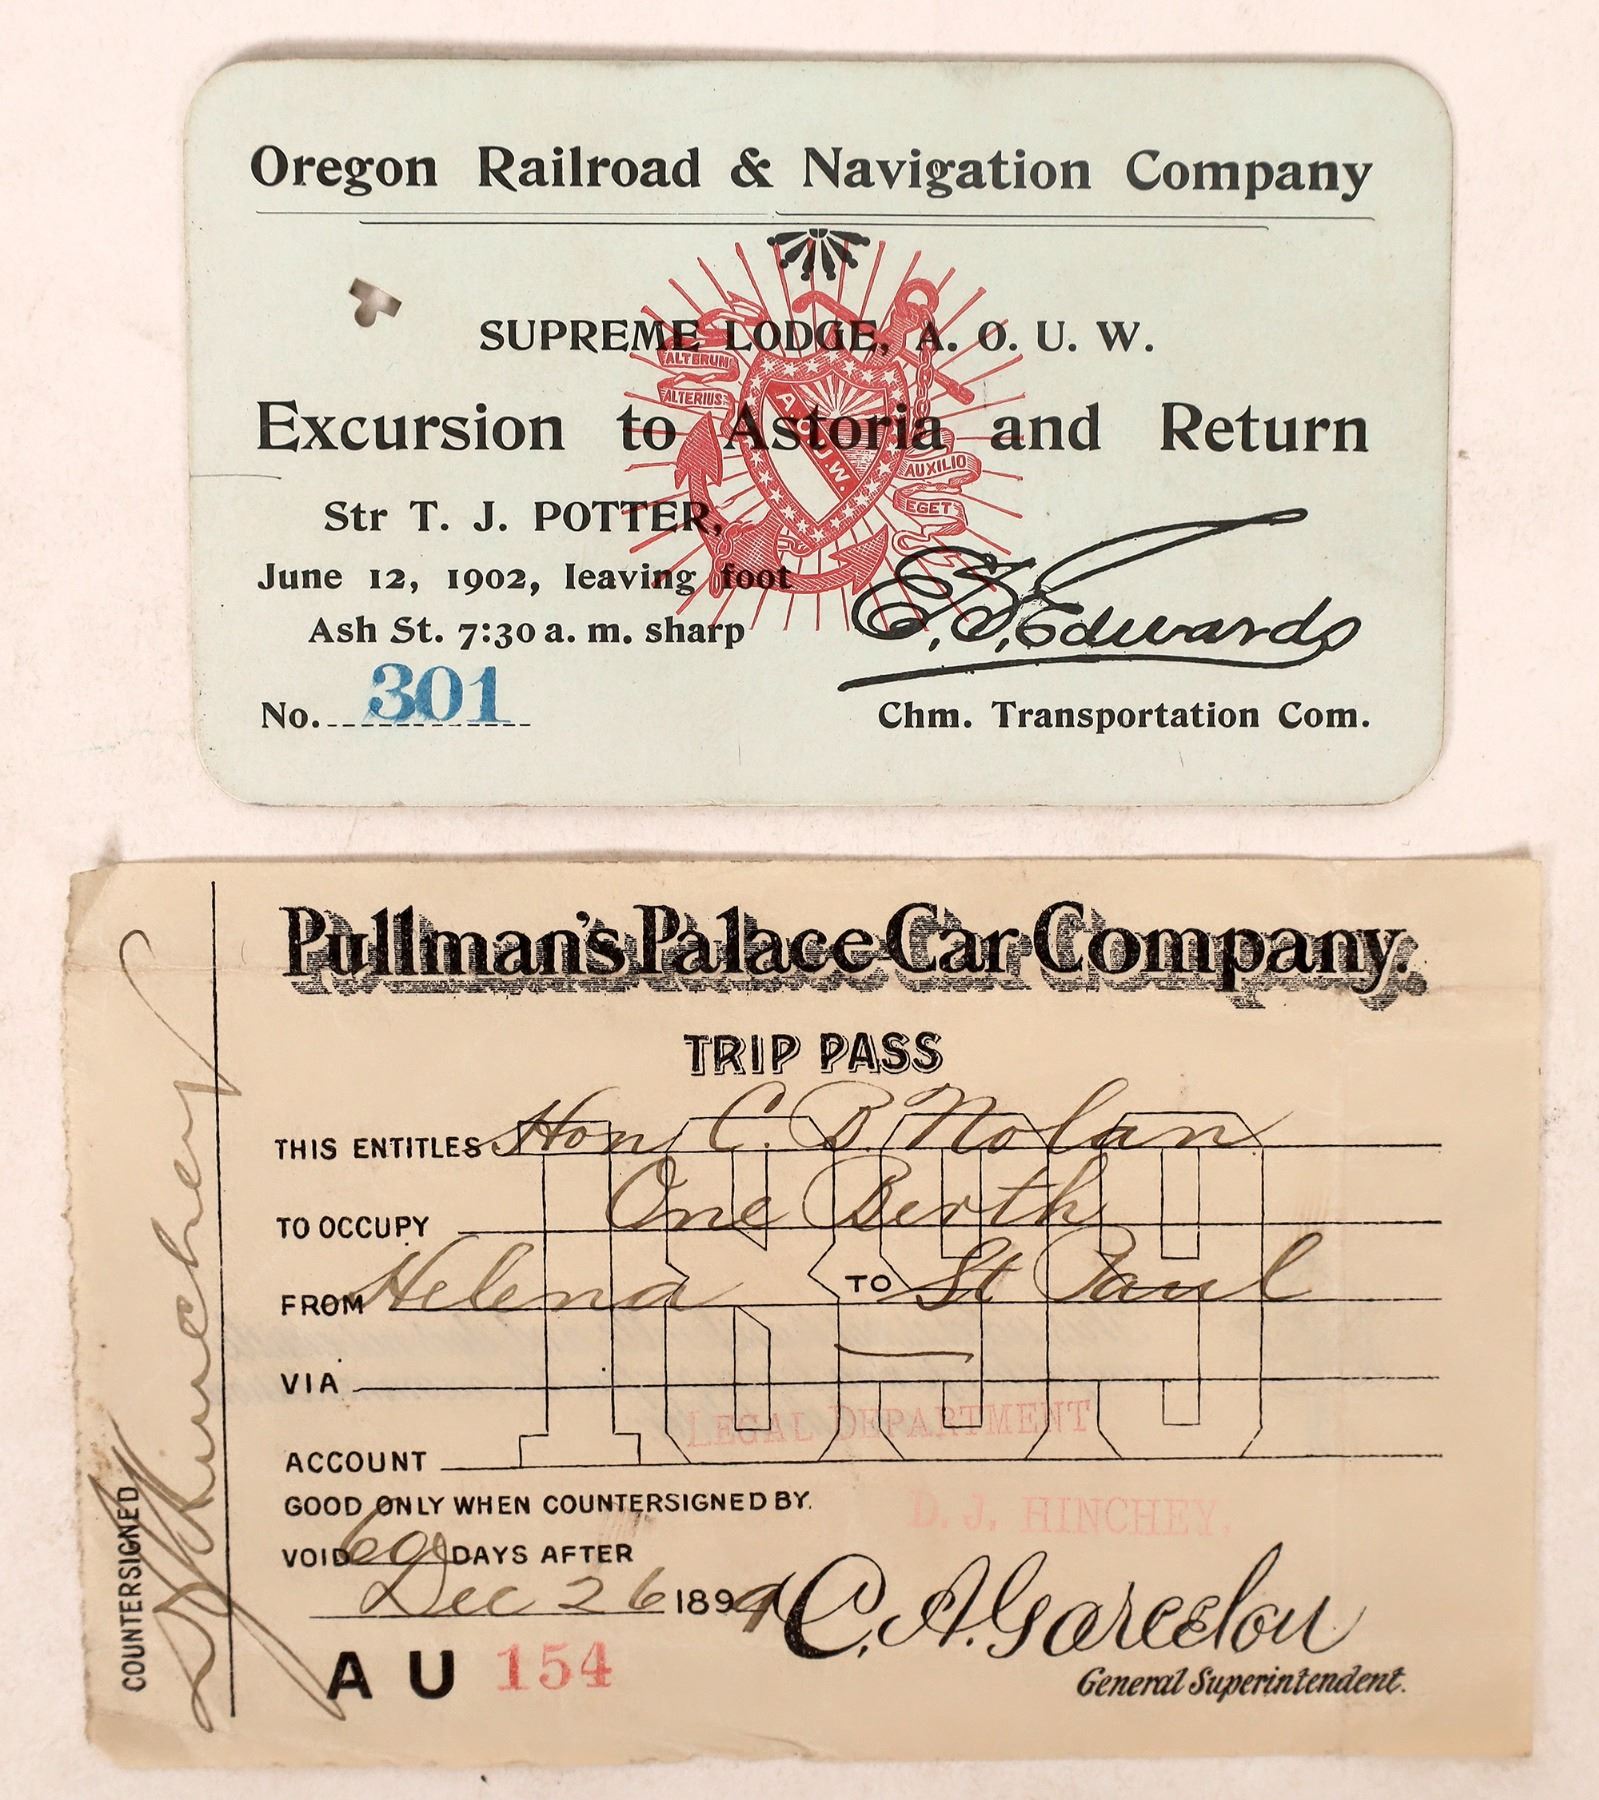 Oregon Railroad & Navigation Company
SUPREME LODGE, A. O. U. W.
ALTERUM
ALTERIUS
A.O.U.W.
AUXILIO
EGET
Excursion to Astoria and Return
Str T. J. POTTER,
June 12, 1902, leaving foot
Ash St. 7:30 a. m. sharp
No. 301
Edwards
Chm. Transportation Com.
Pullman's Palace Car Company.
TRIP PASS
THIS ENTITLES Hon C. B. Nolan
TO OCCUPY One Berth
FROM Helena TO St Paul
VIA
LEGAL DEPARTMENT
ACCOUNT
GOOD ONLY WHEN COUNTERSIGNED BY. D. J. HINCHEY.
VOID 60 DAYS AFTER
Dec 26 1899
C. A. Garcelon
General Superintendent.
AU 154
COUNTERSIGNED D J Hinchey
1899